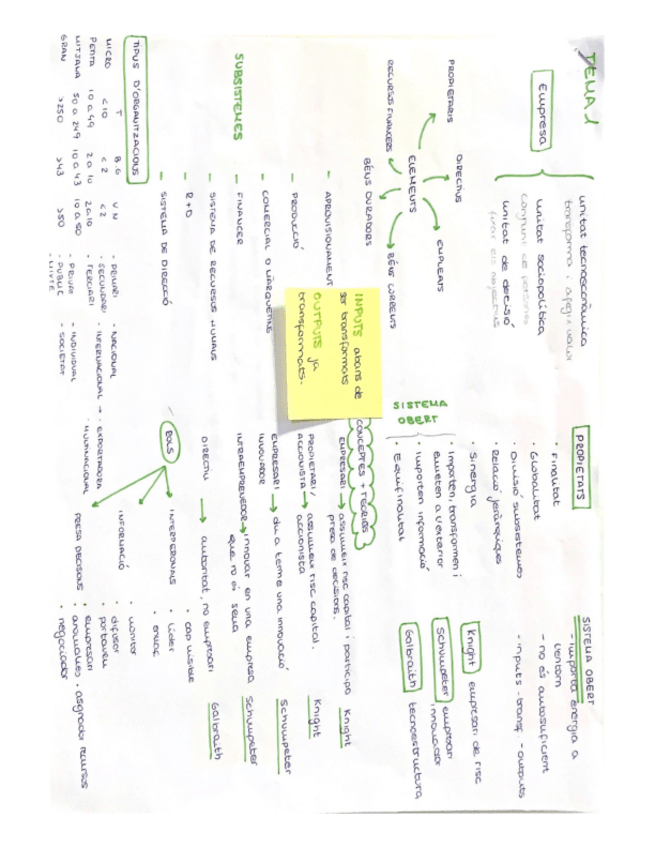 TEMA 1
Empresa
unitat tecnoeconòmica
transforma i afegir valor
unitat sociopolítica
conjunt de persones
unitat de decisió
fixar els objectius
PROPIETARIS
DIRECTIUS
RECURSOS FINANCERS
ELEMENTS
EMPLEATS
BÉNS DURADORS
BÉNS CORRENTS
SUBSISTEMES
- APROVISIONAMENT
- PRODUCCIÓ
- COMERCIAL O MÀRQUETING
- FINANCER
- SISTEMA DE RECURSOS HUMANS
- R+D
- SISTEMA DE DIRECCIÓ
INPUTS abans de
ser transformats
OUTPUTS ja
transformats.
TIPUS D'ORGANITZACIONS
T B.G V.N
MICRO <10 <2 <2
PETITA 10 a 49 2 a 10 2 a 10
MITJANA 50 a 249 10 a 43 10 a 50
GRAN >250 >43 >50
- PRIMARI
- SECUNDARI
- TERCIARI
- PRIVAT
- PÚBLIC
- MIXTE
- NACIONAL
- INTERNACIONAL → - EXPORTADORA
- MULTINACIONAL
- INDIVIDUAL
- SOCIETAT
PROPIETATS
· Finalitat
· Globalitat
· Divisió subsistemes
· Relació jeràrquiques
· Sinergia
SISTEMA
OBERT
· Importen, transformen i
emeten a l'exterior
· Importen informació
· Equifinalitat
SISTEMA OBERT
- importa energia a
l'entorn
- no és autosuficient
- inputs - transf - outputs
Knight empresari de risc
Schumpeter empresari
innovador
Galbraith tecnoestructura
CONCEPTES + TEORIES
EMPRESARI → assumeix risc capital i participa Knight
presa de decisions.
PROPIETARI/ → assumeix risc capital. Knight
ACCIONISTA → accionista
EMPRESARI → du a terme una innovació Schumpeter
INNOVADOR
INTRAEMPRENEDOR → innovar en una empresa Schumpeter
que no és seva
DIRECTIU → autoritat, no empresari Galbraith
ROLS
INTERPERSONALS
· cap visible
· líder
· enllaç
INFORMACIÓ
· monitor
· difusor
· portaveu
PRESA DECISIONS
· empresari
· anomalies · assignador recursos
· negociador